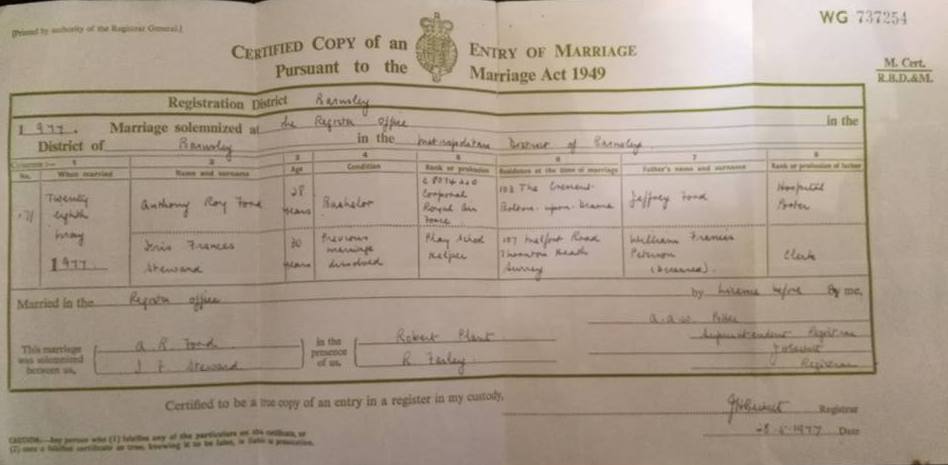 [Printed by authority of the Registrar General.]
WG 737254
CERTIFIED COPY of an ENTRY OF MARRIAGE
Pursuant to the Marriage Act 1949
M. Cert.
R.B.D.&M.
Registration District Barnsley
1977. Marriage solemnized at the Register office in the
District of Barnsley in the metropolitan District of Barnsley
Columns:— 1 2 3 4 5 6 7 8
No. When married Name and surname Age Condition Rank or profession Residence at the time of marriage Father's name and surname Rank or profession of father
Twenty eighth may 1977
Anthony Roy Ford
28 years
Bachelor
Corporal Royal Air Force
The Crescent
Jeffrey Ford
Hospital Porter
Frances Steward
30 years
Previous marriage dissolved
Play School Helper
Road Thornton Heath Surrey
William Francis
(Deceased).
Clerk
Married in the Register office by licence before By me,
This marriage was solemnized between us,
A. R. Ford
Steward
in the presence of us,
Robert Plant
R
Superintendent Registrar
Registrar
Certified to be a true copy of an entry in a register in my custody,
Registrar
28-5-1977 Date
CAUTION.—Any person who (1) falsifies any of the particulars on this certificate, or
(2) uses a falsified certificate as true, knowing it to be false, is liable to prosecution.